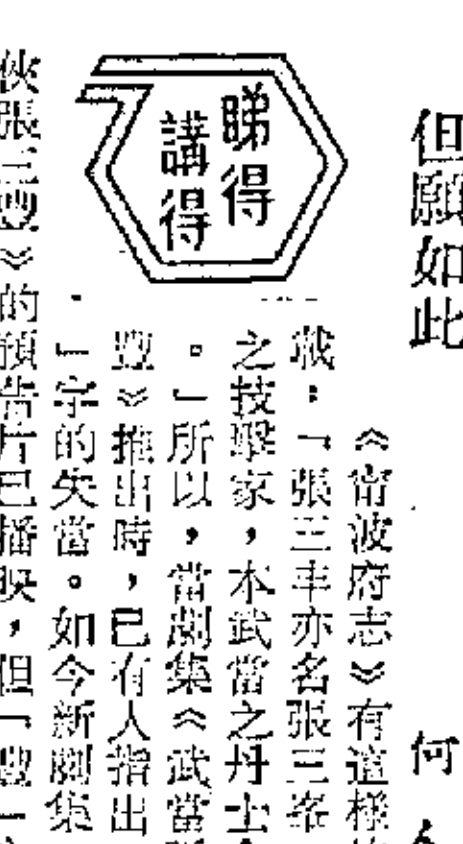 但願如此
何
睇得
講得
《甯波府志》有這樣
載：「張三丰亦名張三峯
之技擊家，本武當之丹士
。」所以，當劇集《武當
豐》推出時，已有人指出
」字的失當。如今新劇集
俠張三豐》的預告片已播映，但「豐」